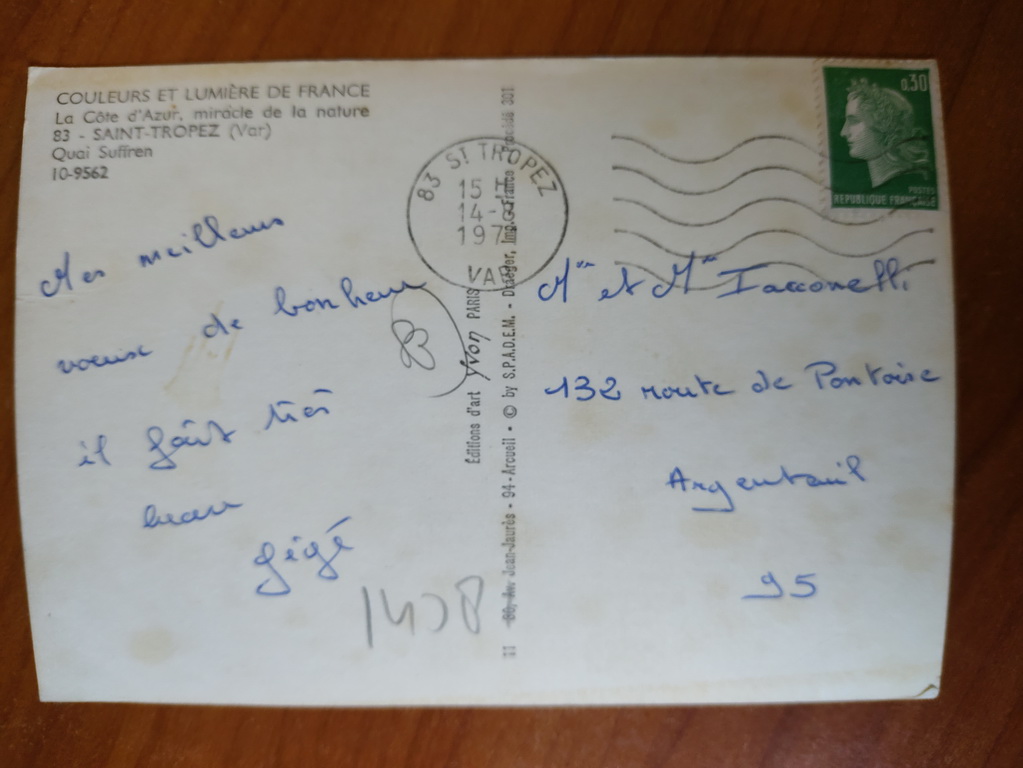 COULEURS ET LUMIÈRE DE FRANCE
La Côte d'Azur, miracle de la nature
83 - SAINT-TROPEZ (Var)
Quai Suffren
10-9562
Mes meilleurs
voeux de bonheur
il fait très
beau
Gégé
83 ST TROPEZ
15 H
14-
197
VAR
0,30
POSTES
REPUBLIQUE FRANÇAISE
Mr et Mme Iacconelli
132 route de Pontoise
Argenteuil
95
Editions d'art yvon PARIS
11 80, Av. Jean-Jaurès - 94-Arcueil • © by S.P.A.D.E.M. - Draeger, Imp. France Procédé 301